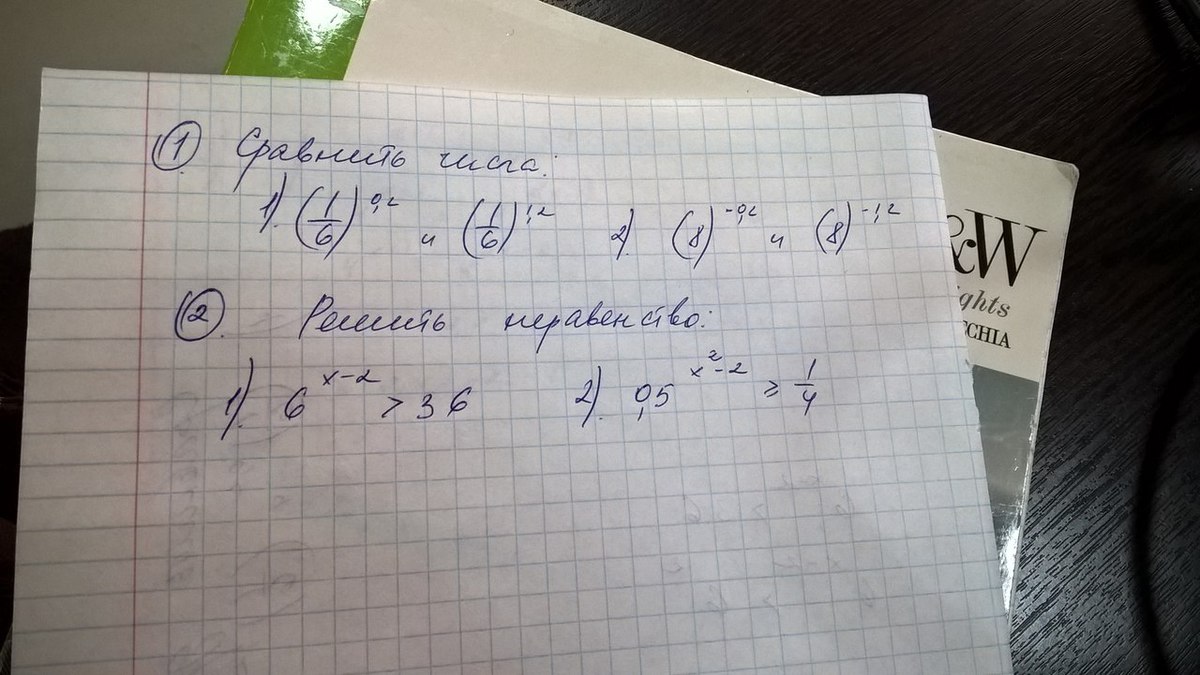 ① Сравнить числа:
1). (1/6)^0,2 и (1/6)^1,2 2). (8)^-0,2 и (8)^-1,2
②. Решить неравенство:
1). 6^x-2 > 36 2). 0,5^x²-2 ≥ 1/4
&W
ights
CCHIA